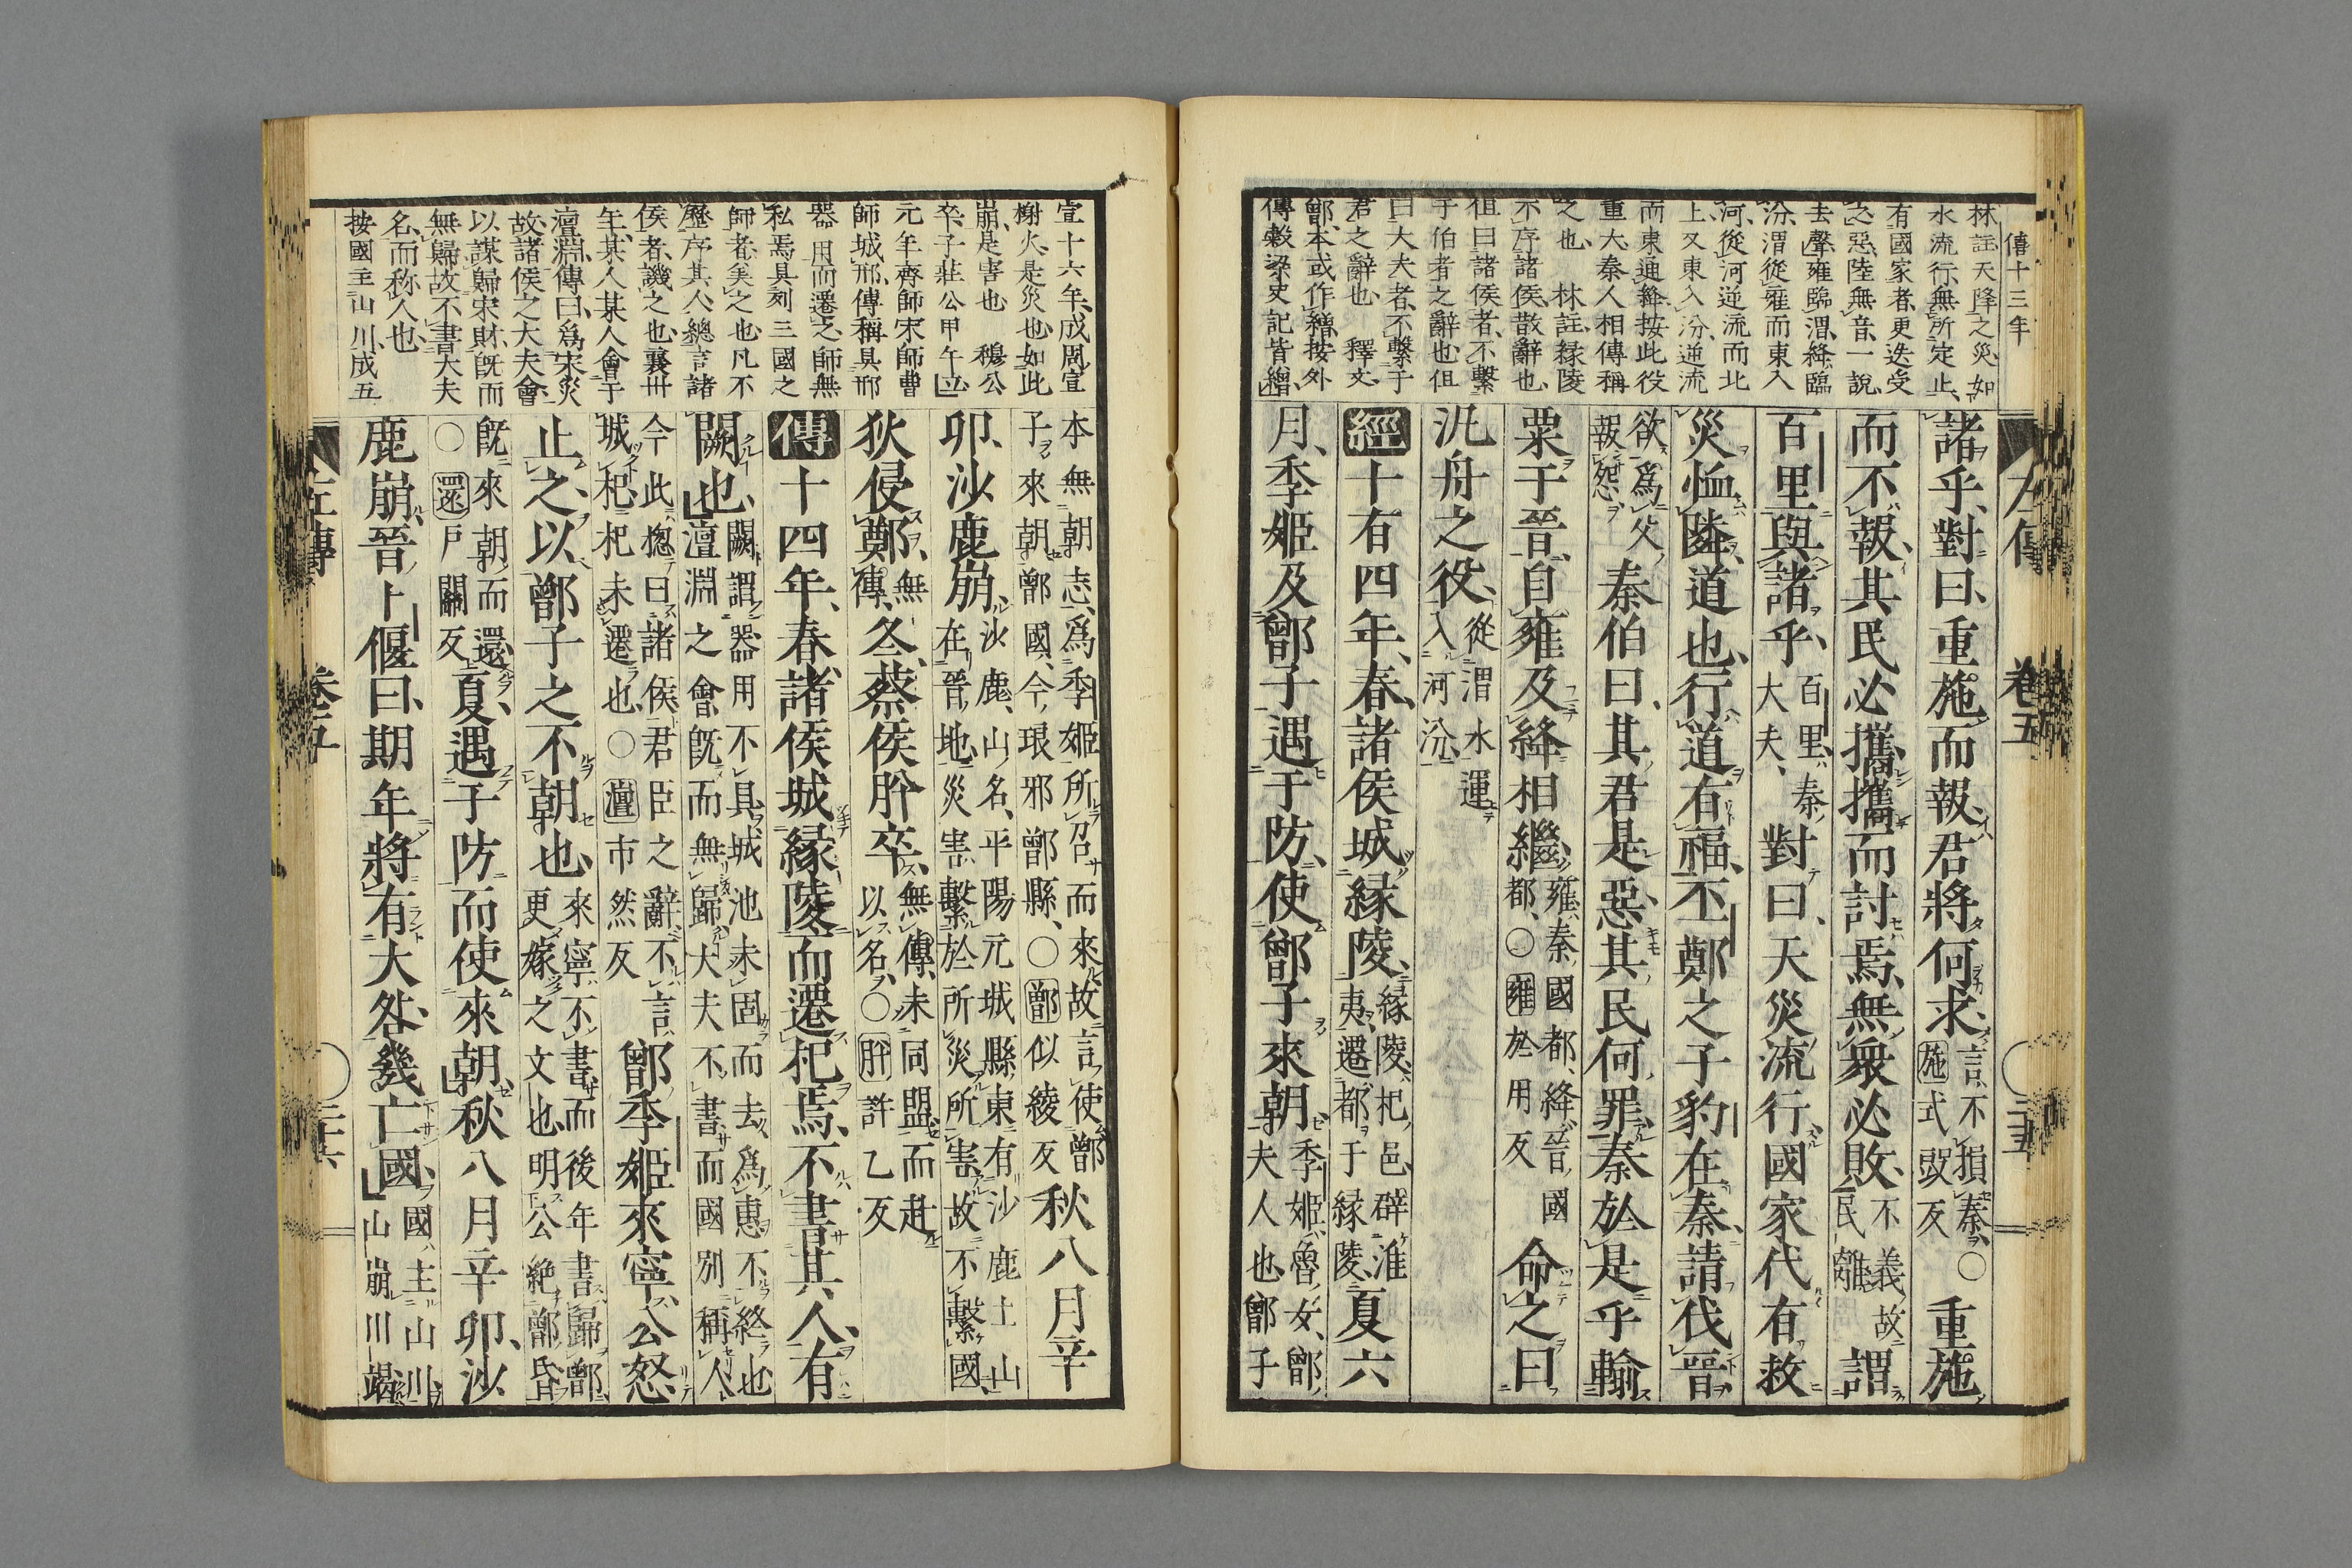 僖十三年
林註天降之災如
水流行無所定止
有國家者更迭受
之惡陸無音一說
去聲雍臨渭絳臨
汾渭從雍而東入
河從河逆流而北
上又東入汾逆流
而東通絳按此役
重大秦人相傳稱
之也 林註縁陵
不序諸侯散辭也
但曰諸侯者不繫
乎伯者之辭也但
曰大夫者不繫于
君之辭也 釋文
鄫本或作繒按外
傳榖梁史記皆繒
左傳 卷五 二十五
諸乎對曰重施而報君將何求言不損秦○施式豉反重施
而不報其民必攜攜而討焉無衆必敗不義故民離謂
百里與諸乎百里秦大夫對曰天災流行國家代有救
災恤隣道也行道有福丕鄭之子豹在秦請伐晉
欲爲父報怨秦伯曰其君是惡其民何罪秦於是乎輸
粟于晉自雍及絳相繼雍秦國都絳晉國都○雍於用反命之曰
汎舟之役從渭水運入河汾
經十有四年春諸侯城縁陵縁陵杞邑辟淮夷遷都于縁陵夏六
月季姬及鄫子遇于防使鄫子來朝季姬魯女鄫夫人也鄫子
宣十六年成周宣
榭火是災也如此
崩是害也 穆公
卒子莊公甲午立
元年齊師宋師曹
師城邢傳稱具邢
器用而遷之師無
私焉具列三國之
師者美之也凡不
歷序其人總言諸
侯者譏之也襄卅
年某人某人會于
澶淵傳曰爲宋災
故諸侯之大夫會
以謀歸宋財旣而
無歸故不書大夫
名而称人也
按國主山川成五
本無朝志爲季姬所召而來故言使鄫子來朝鄫國今琅邪鄫縣○鄫似綾反秋八月辛
卯沙鹿崩沙鹿山名平陽元城縣東有沙鹿土山在晉地災害繫於所災所害故不繫國
狄侵鄭無傳冬蔡侯肸卒無傳未同盟而赴以名○肸許乙反
傳十四年春諸侯城縁陵而遷杞焉不書其人有
闕也闕謂器用不具城池未固而去爲惠不終也澶淵之會旣而無歸大夫不書而國別稱人
今此揔曰諸侯君臣之辭不言城杞杞未遷也○澶市然反鄫季姬來寧公怒
止之以鄫子之不朝也來寧不書而後年書歸鄫更嫁之文也明公絶鄫昏
旣來朝而還○還戸關反夏遇于防而使來朝秋八月辛卯沙
鹿崩晉卜偃曰期年將有大咎幾亡國國主山川山崩川竭
左傳 卷五 二十六